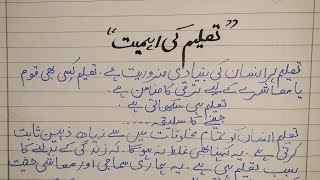 "تعلیم کی اہمیت"
تعلیم ہر انسان کی بنیادی ضرورت ہے۔ تعلیم کسی بھی قوم
یا معاشرے کے لیے ترقی کا ضامن ہے۔
تعلیم ہی سکھاتی ہے
جینے کا سلیقہ ......
تعلیم انسان کو تمام مخلوقات میں سے زیادہ ذہین ثابت
کرتی ہے۔ یہ کہنا بھی غلط نہ ہو گا کہ زندگی کے بدلنے کا
سبب تعلیم ہی ہے۔ یہ ہماری سماجی اور معاشی حیثیت